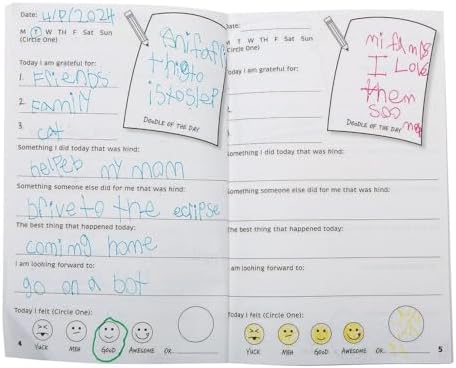 Date: 4/8/2024
M T W TH F Sat Sun
(Circle One)
Today I am grateful for:
1. FriENDS
2. FAMiLY
3. cat
thigto
istoslep
DOODLE OF THE DAY
Something I did today that was kind:
helpeb my mom
Something someone else did for me that was kind:
brive to the eclipse
The best thing that happened today:
coming home
I am looking forward to:
go on a bot
Today I felt (Circle One):
YUCK MEH GOOD AWESOME OR
4
Date:
M T W TH F Sat Sun
(Circle One)
Today I am grateful for:
1.
2.
3.
I LOVE
them
soo
DOODLE OF THE DAY
Something I did today that was kind:
Something someone else did for me that was kind:
The best thing that happened today:
I am looking forward to:
Today I felt (Circle One):
YUCK MEH GOOD AWESOME OR
5